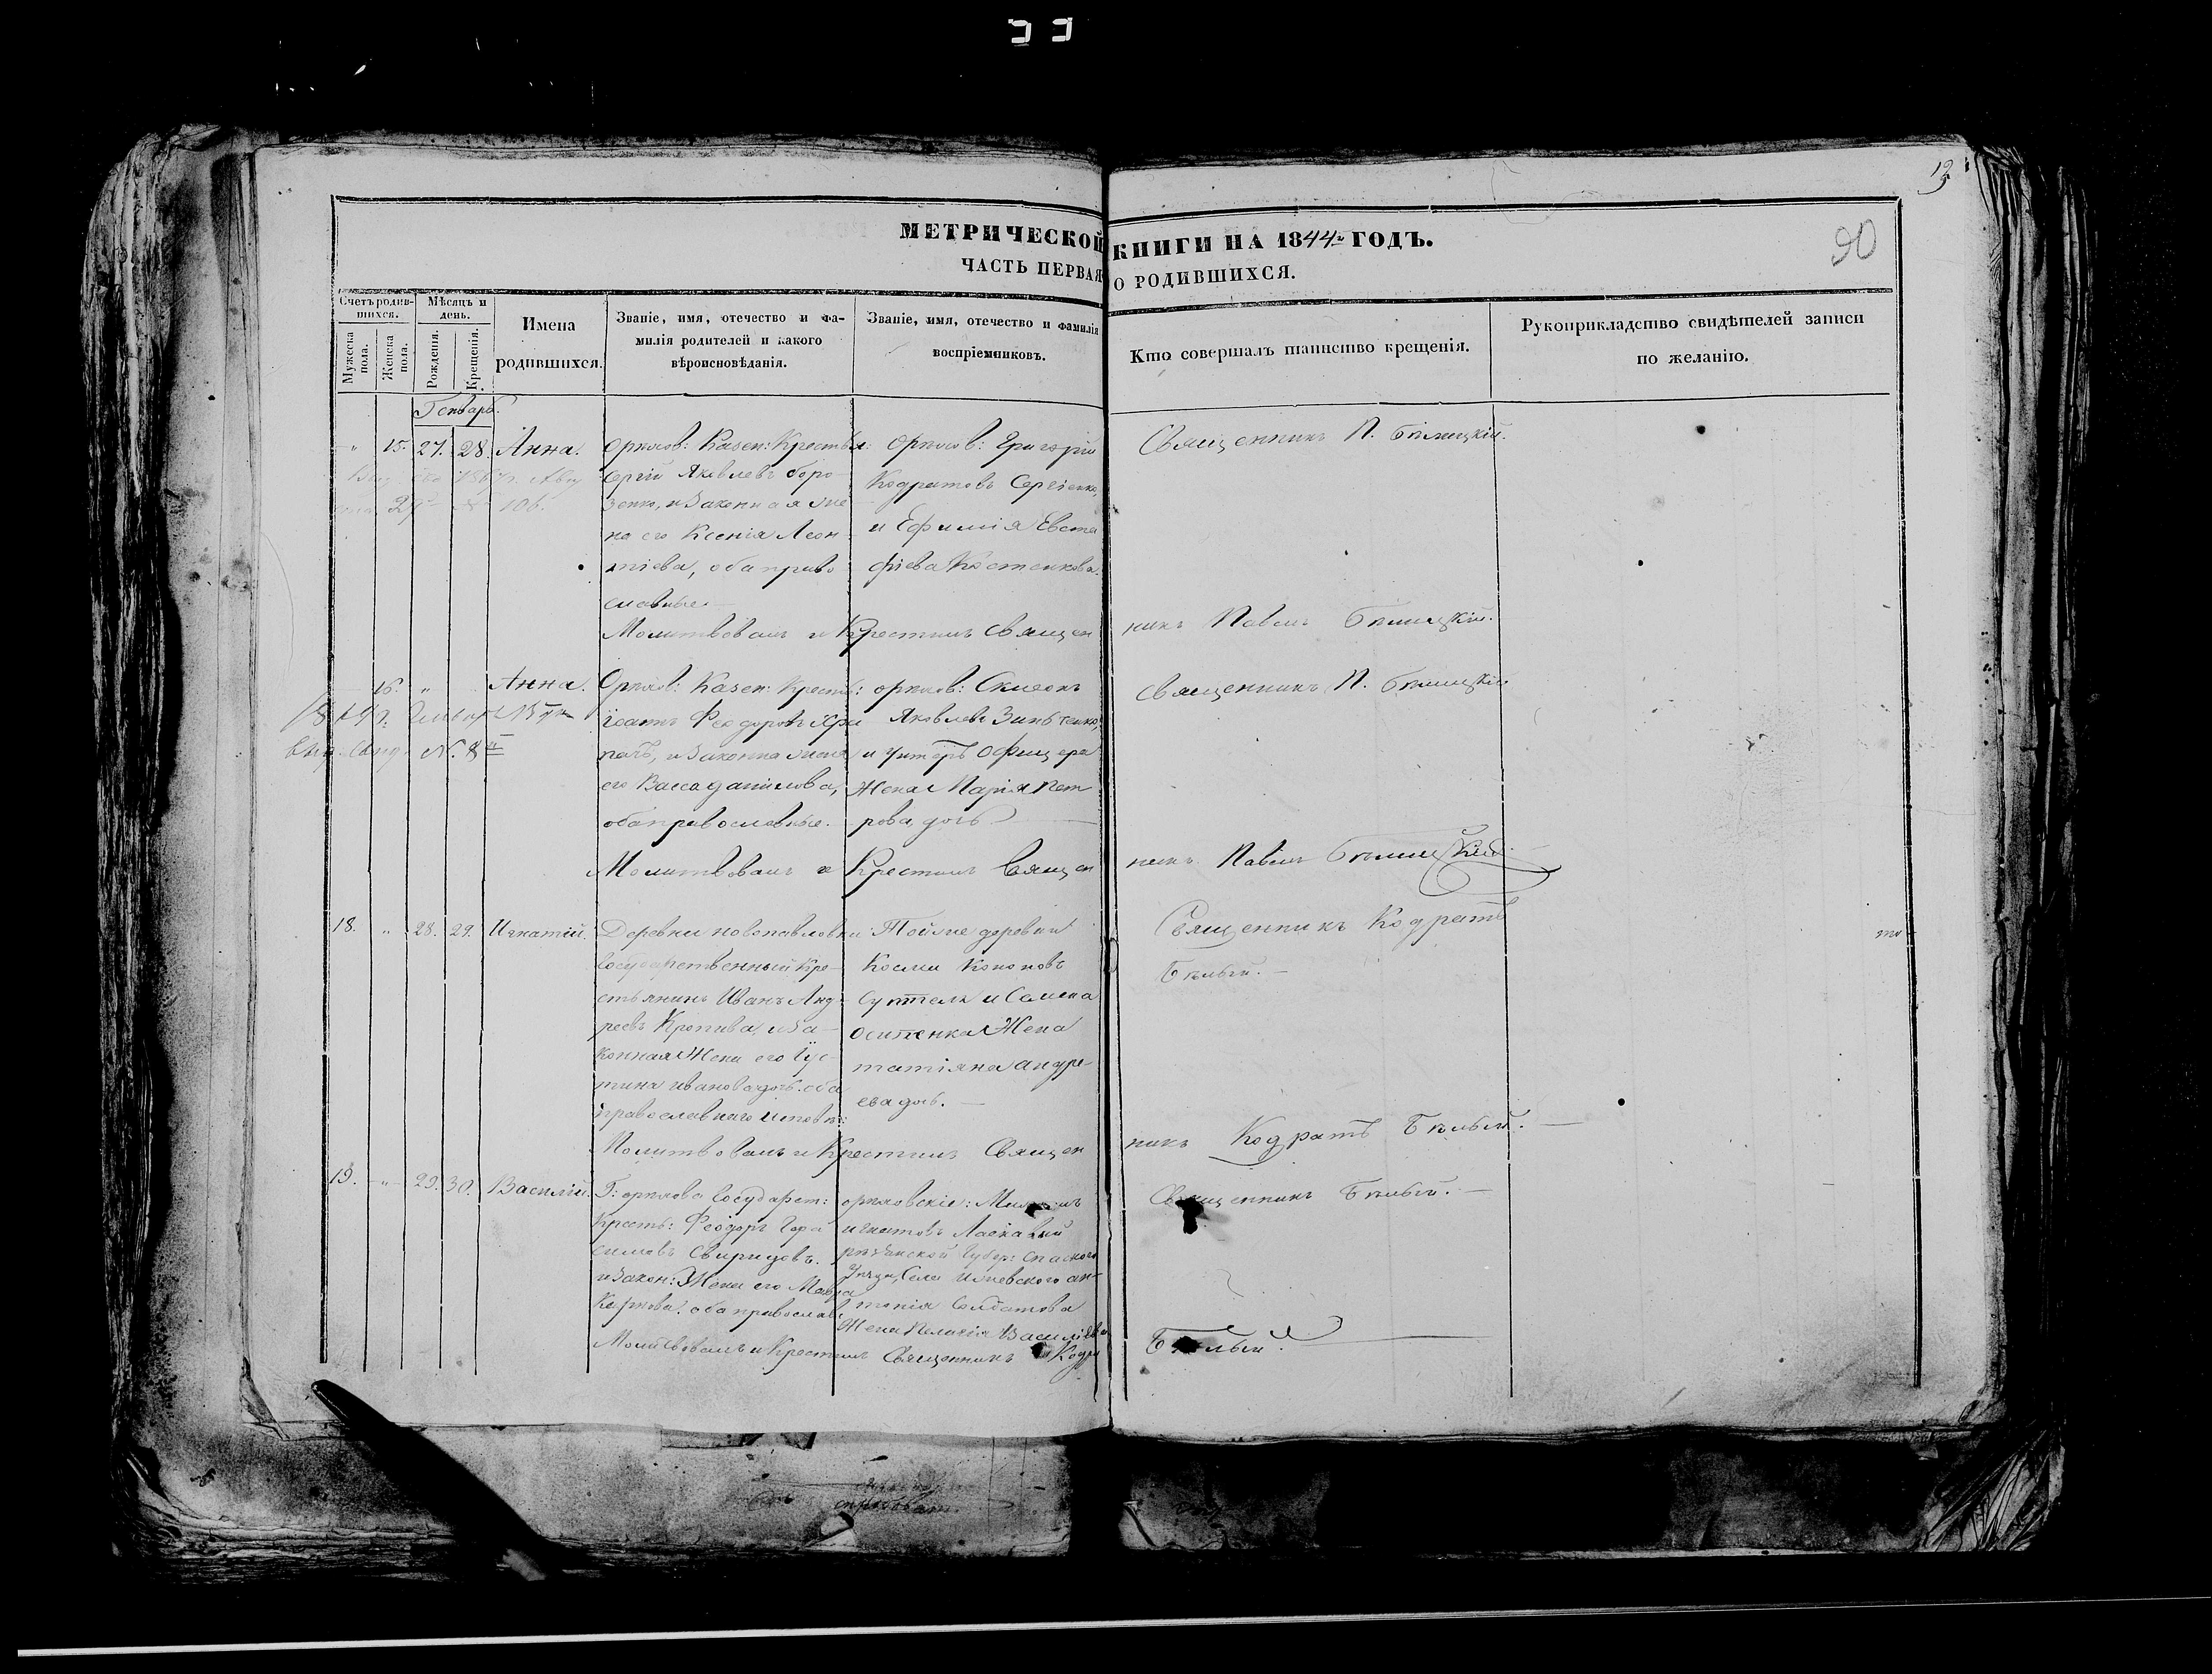 13
90
МЕТРИЧЕСКОЙ КНИГИ НА 1844й ГОДЪ.
ЧАСТЬ ПЕРВАЯ О РОДИВШИХСЯ.
Счетъ родив-
шихся.
Мужеска
пола.
Женска
пола.
Мѣсяцъ и
день.
Рожденія.
Крещенія.
Имена
родившихся.
Званіе, имя, отечество и фа-
милія родителей и какого
вѣроисповѣданія.
Званіе, имя, отечество и фамилія
воспріемниковъ.
Кто совершалъ таинство крещенія.
Рукоприкладство свидѣтелей записи
по желанію.
Генварь.
" 15. 27. 28. Анна.
Орѣхов: Казен: Крестья:
Сергій Яковлевъ Боро-
зенко, и законная же
на его Ксенія Леон-
тіева, оба право
славные.
Орѣхов: Григорій
Кодратовъ Сергіенко,
и Ефимія Евста
фіева Костенкова.
Священникъ П. Бѣлицкій.
Молитвовалъ и Крестилъ Священ
никъ Павелъ Бѣлицкій.
16. " Анна.
N. 8й
Орѣхов: Казен: Крестья:
Іоаннъ Феодоровъ
и законна жена
его Васса Данилова,
оба православные.
орѣхов: Симеонъ
Яковлевъ Зинченко,
и унтеръ офицера
Жена Марія Пет
рова дочь
Священникъ П. Бѣлицкій
Молитвовалъ и Крестилъ Священ
никъ Павелъ Бѣлицкій
18. " 28. 29. Игнатій.
Деревни новопавловки
Государственный Кре-
стьянинъ Иванъ Анд-
реевъ Кропива, и за-
конная Жена его Іус-
тина Иванова дочь. оба
православнаго исповѣ:
Той же деревни
Косма Кононовъ
Суптеля и Семена
Осипенка Жена
татіяна андре-
ева дочь.
Священникъ Кодратъ
Бѣлый.
Молитвовалъ и Крестилъ Священ
никъ Кодратъ Бѣлый.
19. " 29. 30. Василій.
Г: орѣхова Государст:
Кресть: Феодоръ Гера
симовъ Свиридовъ.
и Закон: Жена его Мавра
Карпова. оба православ:
орѣховскіе:
игнатовъ Ласкавый
рязанской Губер: Спаскаго
Уѣзда, Села Ижевскаго ан-
тонія Солдатова
Жена Пелагія Василіева
Священникъ Бѣлый.
Молитвовалъ и Крестилъ Священникъ Кодра
Бѣлый.